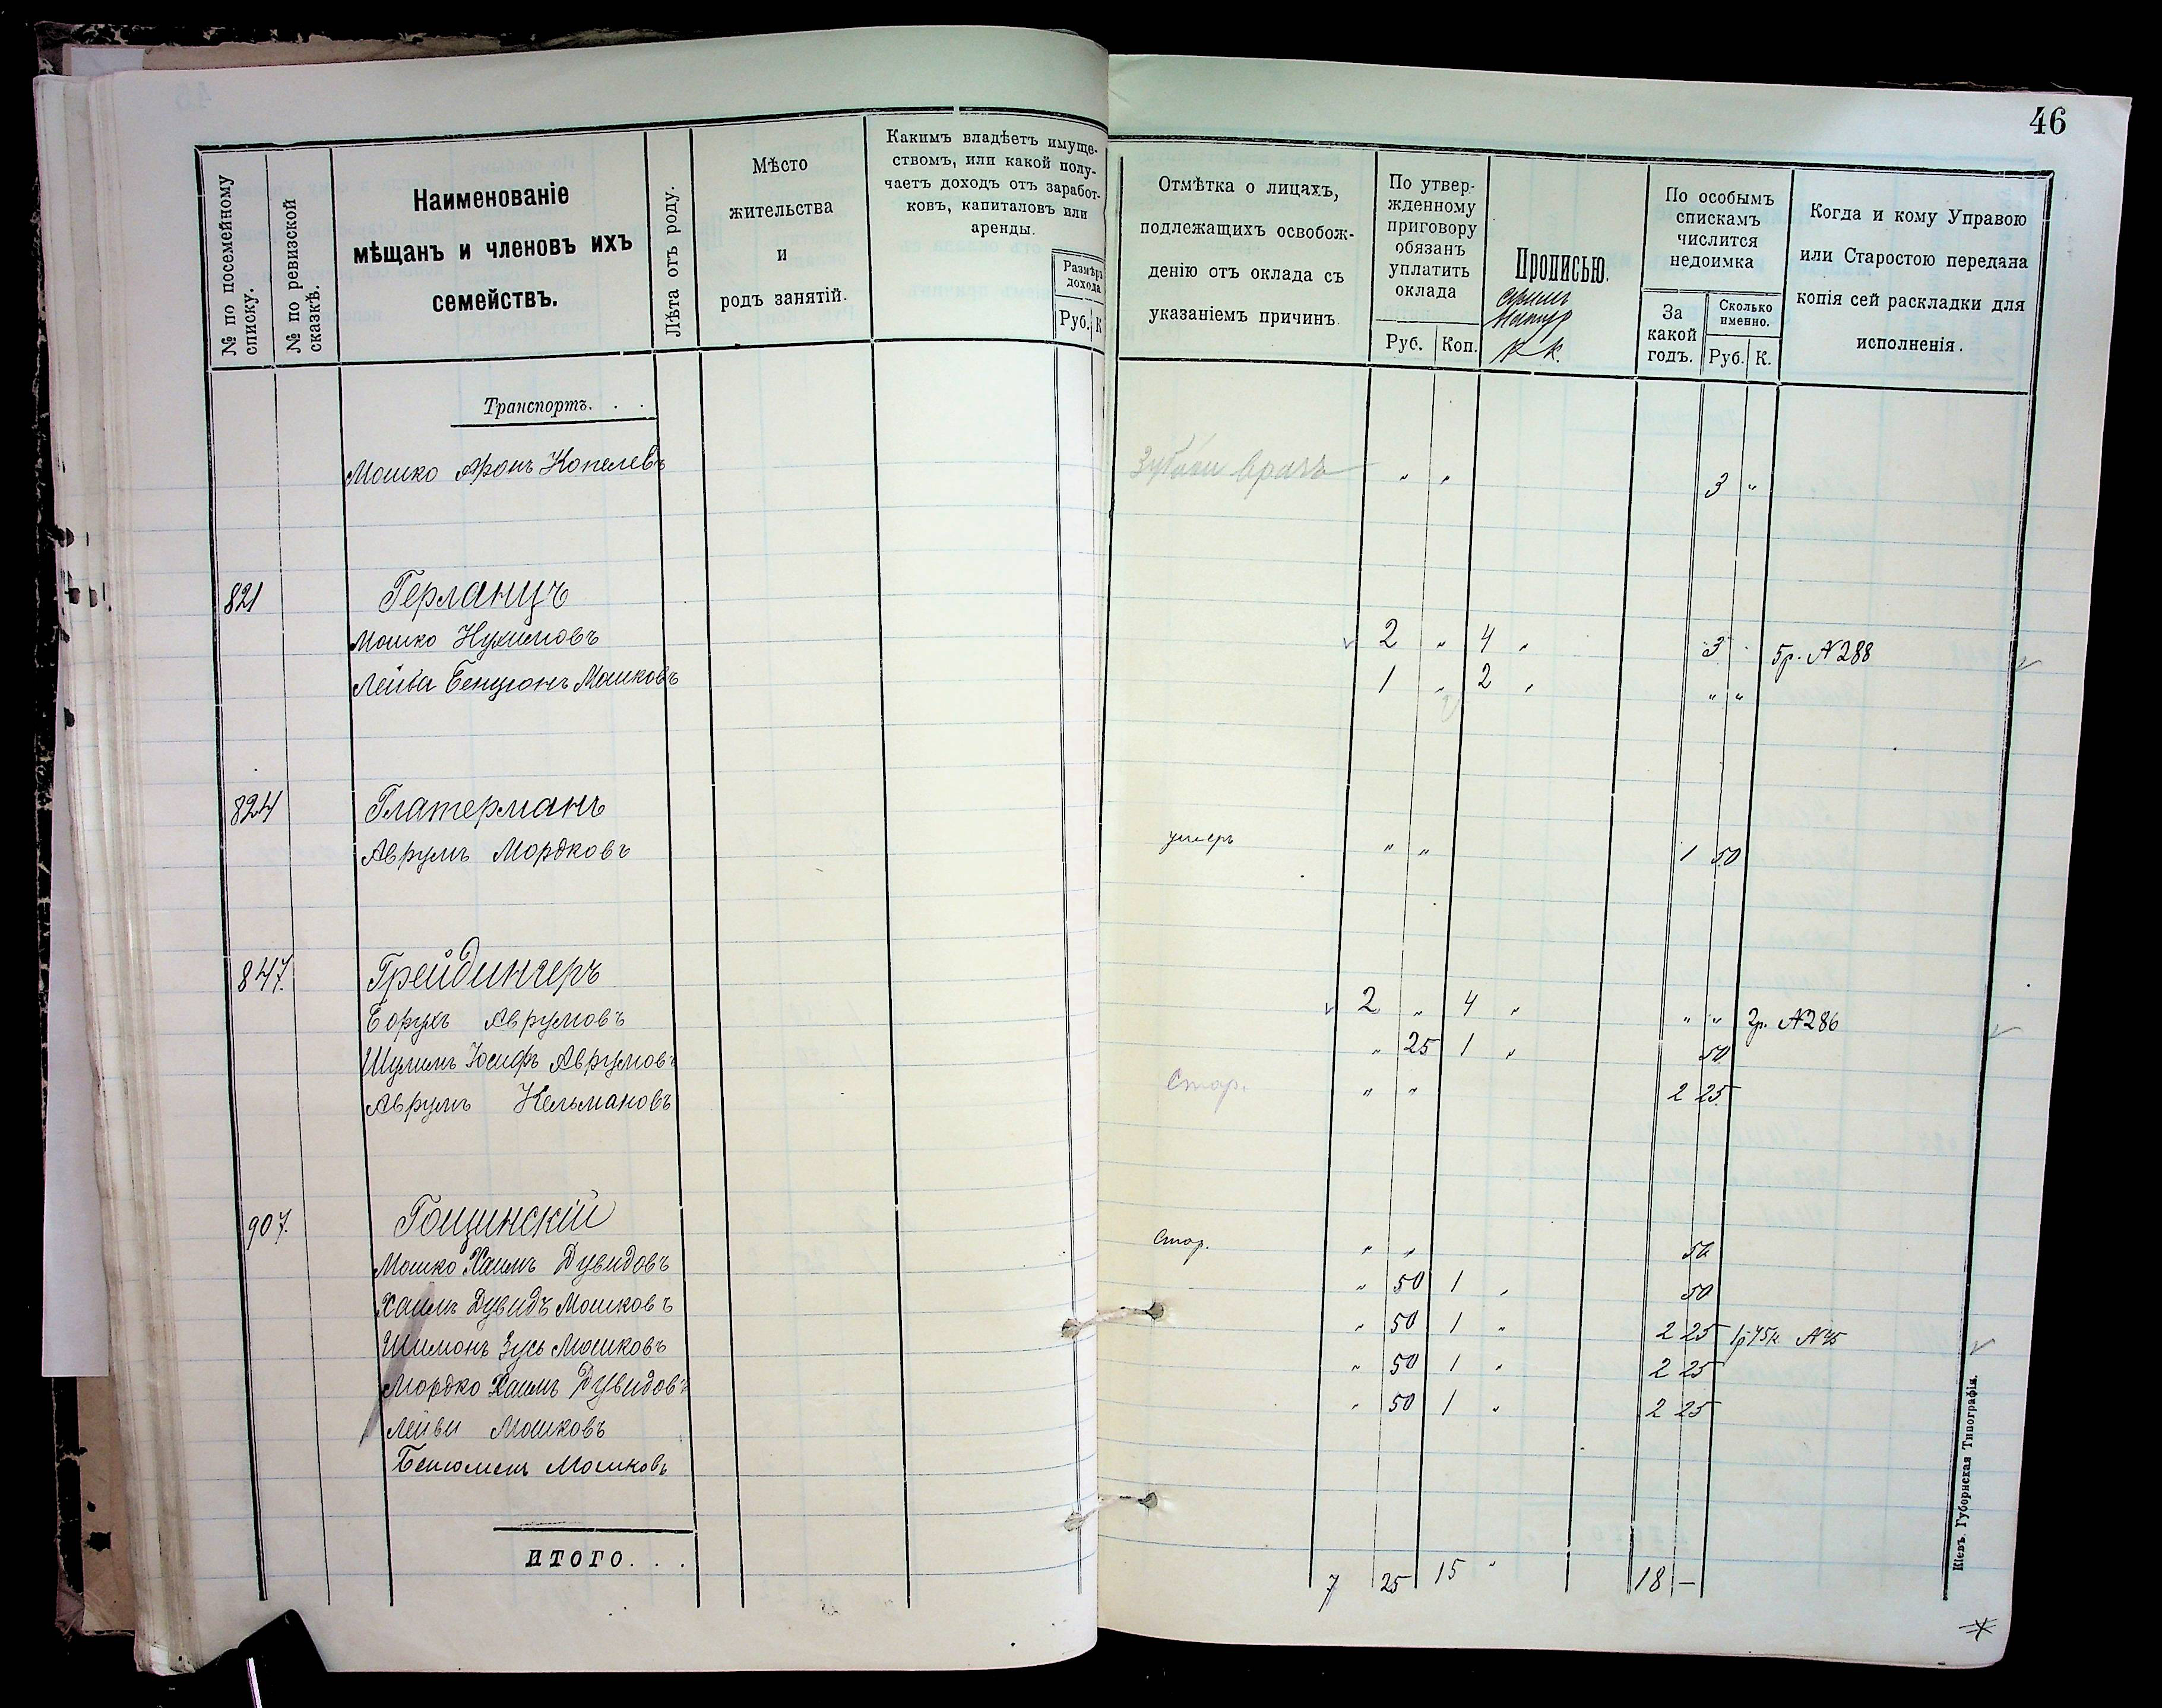 46
№ по посемейному списку.
№ по ревизской сказкѣ.
Наименованіе
мѣщанъ и членовъ ихъ
семействъ.
Лѣта отъ роду.
Мѣсто
жительства
и
родъ занятій.
Какимъ владѣетъ имуще-
ствомъ, или какой полу-
чаетъ доходъ отъ заработ-
ковъ, капиталовъ или
аренды.
Размѣръ
дохода
Руб. К
Отмѣтка о лицахъ,
подлежащихъ освобож-
денію отъ оклада съ
указаніемъ причинъ.
По утвер-
жденному
приговору
обязанъ
уплатить
оклада
Руб. Коп.
Прописью.
К К.
По особымъ
спискамъ
числится
недоимка
За
какой
годъ.
Сколько
именно.
Руб. К.
Когда и кому Управою
или Старостою передана
копія сей раскладки для
исполненія.
Транспортъ. . .
Мошко Аронъ Копелевъ врачъ " " 3 "
821 Герланцъ
Мошко Нухимовъ 2 " 4 " 3 5р. №288
Лейба Бенционъ Мошковъ 1 " 2 " " "
824 Глатерманъ
Аврумъ Мордковъ умеръ " " 1 50
847. Грейдингеръ
Борухъ Аврумовъ 2 " 4 " " " 2р. №286
Шулимъ Іосифъ Аврумовъ " 25 1 " 50
Аврумъ Кельмановъ Стар. " " 2 25
907. Гощинскій
Мошко Хаимъ Дувидовъ Стар. " " 50
Хаимъ Дувидъ Мошковъ " 50 1 " 50
Шимонъ Зусь Мошковъ " 50 1 " 2 25 1р 75к №45
Мордко Хаимъ Дувидовъ " 50 1 " 2 25
Лейви Мошковъ " 50 1 " 2 25
Беніоминъ Мошковъ
ИТОГО. . . 7 25 15 " 18 —
Кіевъ. Губернская Типографія.